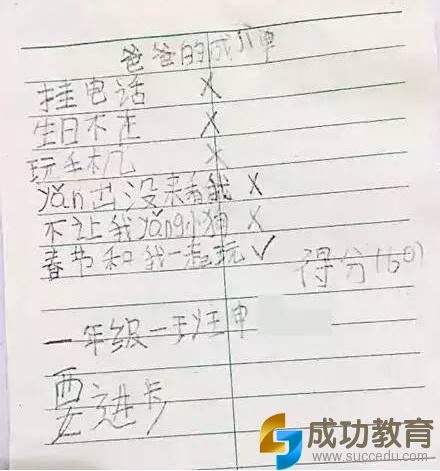 爸爸的成jì单
挂电话 X
生日不在 X
玩手机 X
yǎn出没来看我 X
不让我yǎng小狗 X
春节和我一起玩 ✓
得分(60)
一年级一班申
要进步
成功教育
www.succedu.com